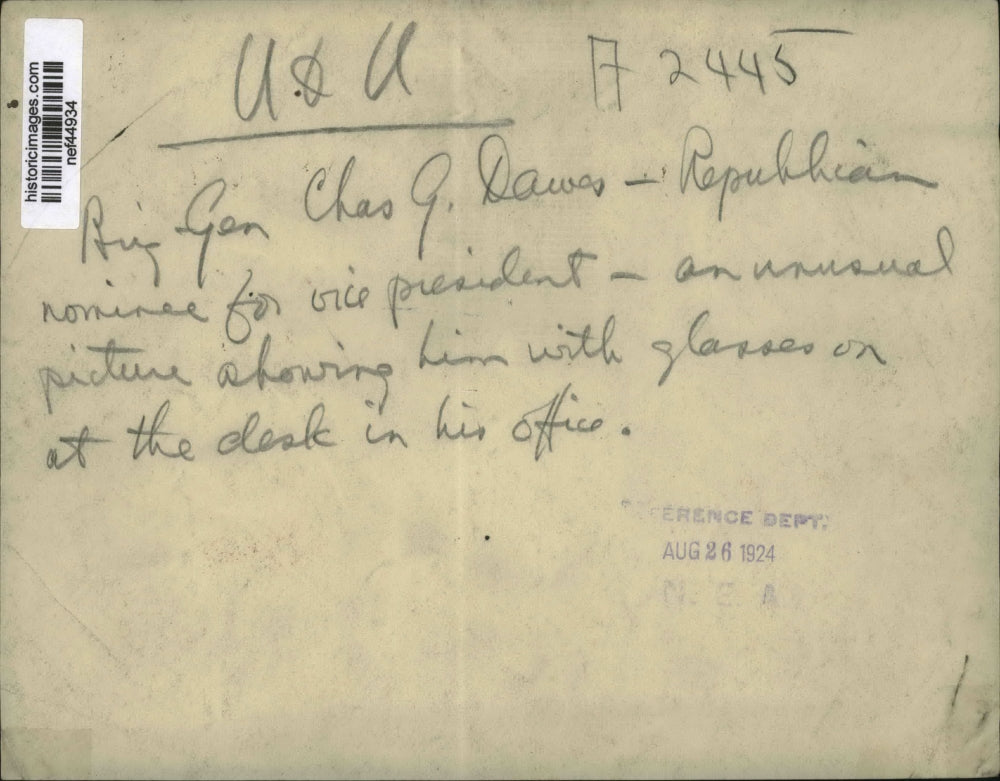 historicimages.com
nef44934
U & U
A 2445
Brig Gen Chas G. Dawes - Republican
nominee for vice president - an unusual
picture showing him with glasses on
at the desk in his office.
REFERENCE DEPT.
AUG 26 1924
N. E. A.